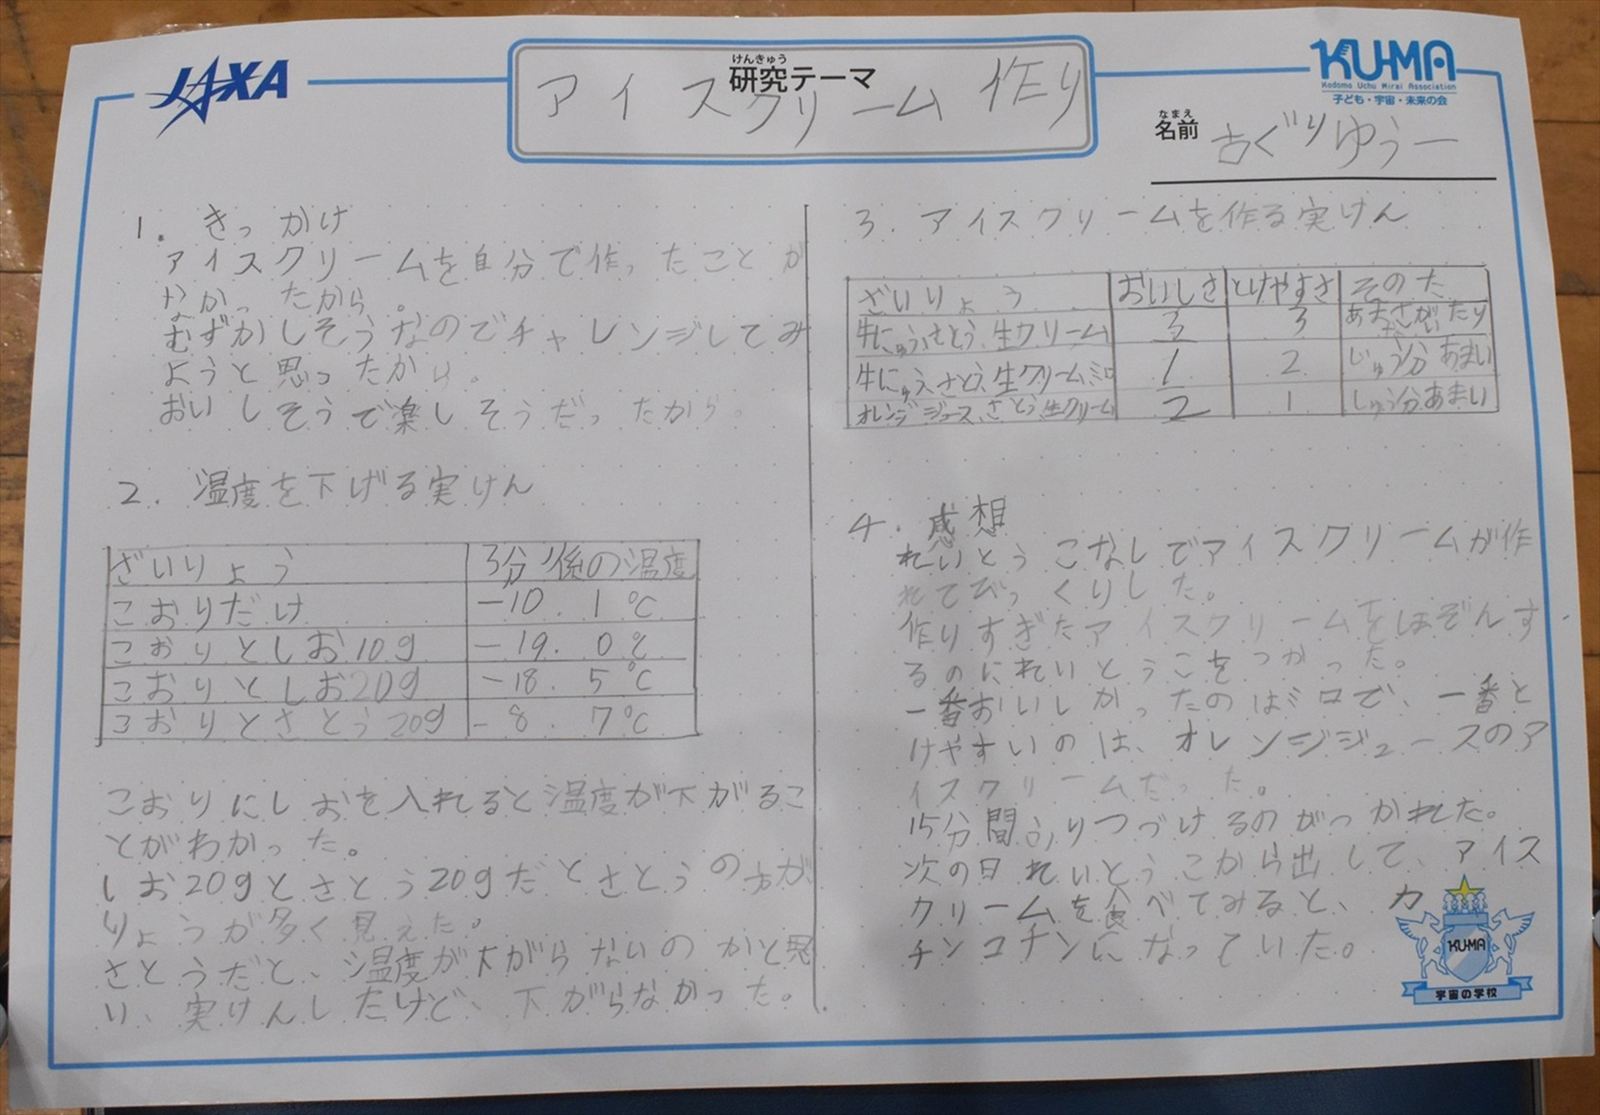 JAXA
けんきゅう
研究テーマ
アイスクリーム作り
KU-MA
Kodomo Uchu Mirai Association
子ども・宇宙・未来の会
なまえ
名前
古ぐりゆうー
1. きっかけ
アイスクリームを自分で作ったことが
なかったから。
むずかしそうなのでチャレンジしてみ
ようと思ったから。
おいしそうで楽しそうだったから。
2. 温度を下げる実けん
ざいりょう 3分後の温度
こおりだけ -10.1℃
こおりとしお10g -19.0℃
こおりとしお20g -18.5℃
こおりとさとう20g -8.7℃
こおりにしおを入れると温度が下がるこ
とがわかった。
しお20gとさとう20gだとさとうの方が
りょうが多く見えた。
さとうだと、温度が下がらないのかと思
い、実けんしたけど、下がらなかった。
3. アイスクリームを作る実けん
ざいりょう おいしさ とけやすさ そのた
牛にゅう、さとう、生クリーム 3 3 あまさがいたり
牛にゅう、さとう、生クリーム、ミロ 1 2 じゅう分あまい
オレンジジュース、さとう、生クリーム 2 1 じゅう分あまい
4. 感想
れいとうこなしでアイスクリームが作
れてびっくりした。
作りすぎたアイスクリームをほぞんす
るのにれいとうこをつかった。
一番おいしかったのはミロで、一番と
けやすいのは、オレンジジュースのア
イスクリームだった。
15分間ふりつづけるのがつかれた。
次の日れいとうこから出して、アイス
クリームを食べてみると、カ
チンコチンになっていた。
KU-MA
宇宙の学校